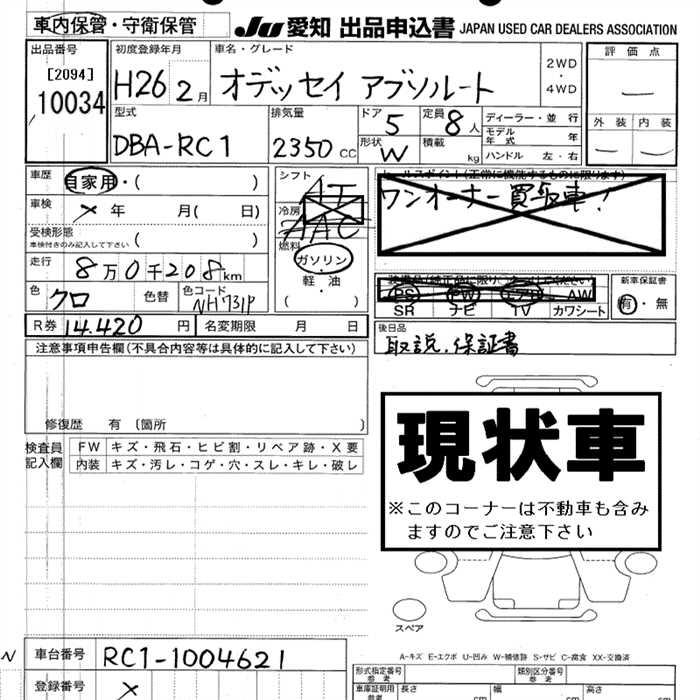 車内保管・守衛保管 JU 愛知 出品申込書 JAPAN USED CAR DEALERS ASSOCIATION
出品番号 初度登録年月 車名・グレード 評価点
[2094] 10034 H26 2月 オデッセイ アブソルート 2WD・4WD —
型式 排気量 ドア 定員 ディーラー・並行 外装 内装
DBA-RC1 2350cc 5 8人 モデル年式 年 — —
形状 W 積載 kg ハンドル 左・右
車歴 自家用・( ) シフト AT
ワンオーナー買取車!
車検 ×年 月( 日) 冷房 AAC
受検形態 車検付きのみ記入して下さい ( ) 燃料 ガソリン・軽・油 ( )
走行 8万0千208km
PS PW エアB AW 新車保証書
SR ナビ TV カワシート 有・無
色 クロ 色替 色コード NH731P
R券 14.420円 名変期限 月 日 後日品
注意事項申告欄(不具合内容等は具体的に記入して下さい) 取説.保証書
修復歴 有 〔箇所
現状車
※このコーナーは不動車も含み
ますのでご注意下さい
検査員記入欄 FW キズ・飛石・ヒビ割・リペア跡・X要
内装 キズ・汚レ・コゲ・穴・スレ・キレ・破レ
スペア
A-キズ E-エクボ U-凹み W-補修跡 S-サビ C-腐食 XX-交換済
N 車台番号 RC1-1004621
形式指定番号 参考 類別区分番号 参考
登録番号 × 車庫証明用 参考 長さ cm 幅 cm 高さ cm